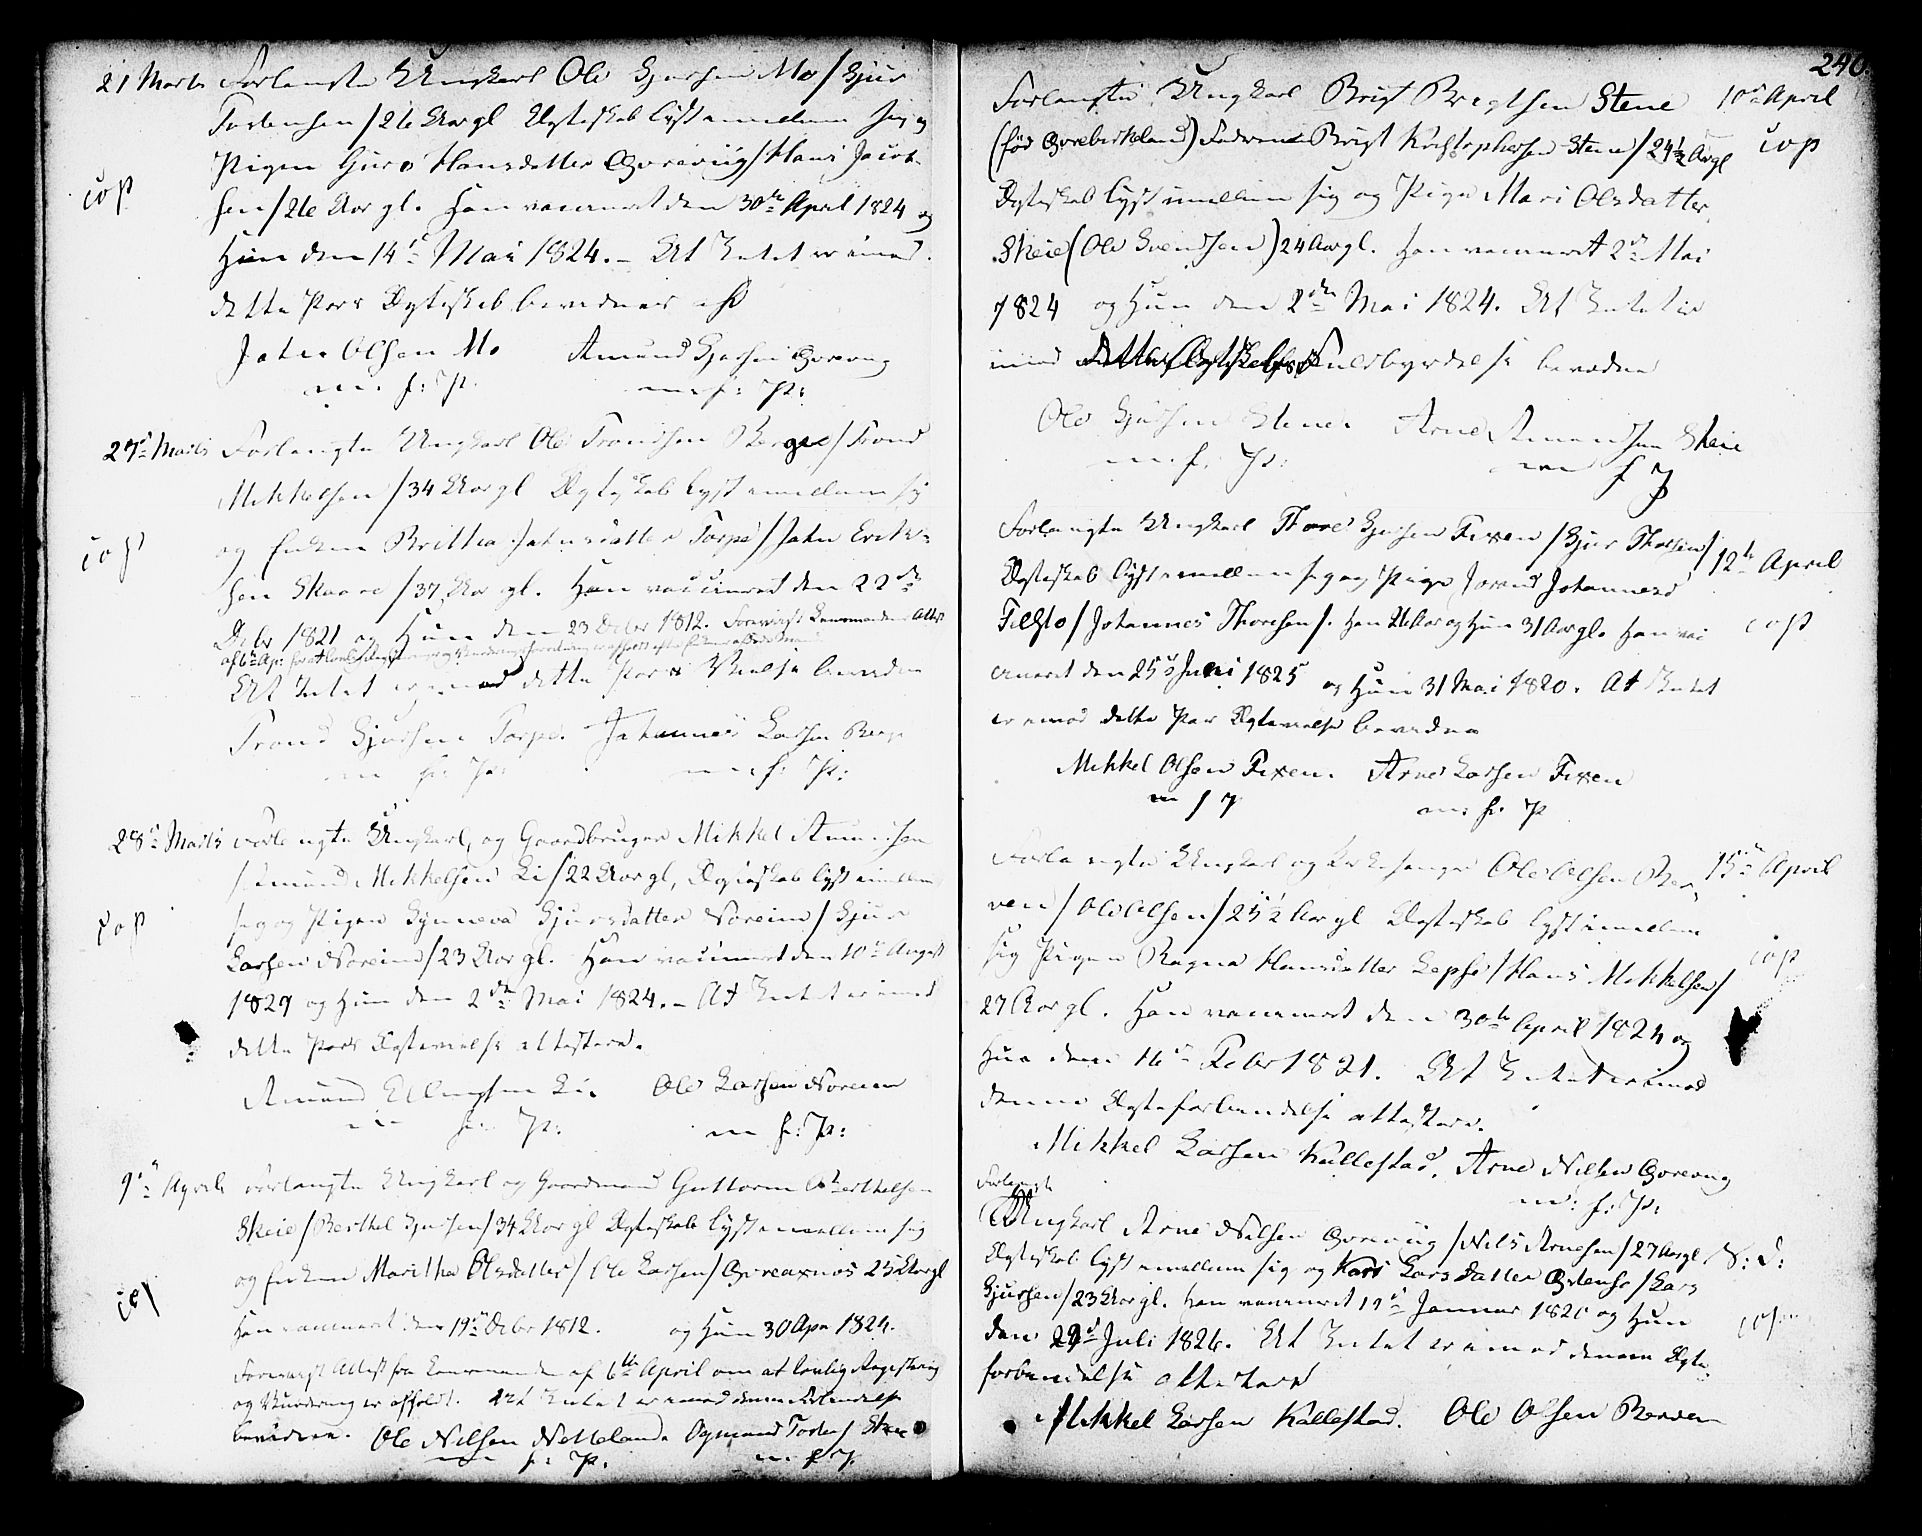 21 Marts Forlangte Ungkarl Ole Gjursen Mo / Gjur
Torbensen / 26 Aar gl Ægteskab lyst imellem sig og
Pigen Guro Hansdatter Qvreviig / Hans Jacob-
cop
sen / 26 Aar gl. Han vaccineret den 30te April 1824 og
Hun den 14de Mai 1824. – At Intet er imod
dette Pars Ægteskab bevidner
John Olsen Mo Amund Gjersen Qvrevig
m. f: P. m. f: P:
27de Marts Forlangte Ungkarl Ole Trondsen Berge / Trond
Mikkelsen / 34 Aar gl Ægteskab lyst imellem sig
og Enken Brittha Johnsdatter Torpe / John Erik-
cop
sen Skaare / 37 Aar gl. Han vaccineret den 22de
Octbr 1821 og Hun den 23 Octbr 1812. Foreviist Lensmandens Attest
af 6te Apr:
At Intet er imod dette Pars Vielse bevidner
Trond Gjursen Torpe. Johannes Larsen Berge
m f: P: m. f: P:
28de Marts Forlangte Ungkarl og Gaardbruger Mikkel Amundsen
/ Amund Mikkelsen Li / 22 Aar gl, Ægteskab lyst imellem
cop
sig og Pigen Synneva Gjursdatter Noreim / Gjur
Larsen Noreim / 23 Aar gl. Han vaccineret den 10de August
1829 og Hun den 2den Mai 1824. – At Intet er imod
dette Pars Ægtevielse attestere.
Amund Ellingsen Li. Ole Larsen Noreim
m f: P: m f: P:
9de April forlangte Ungkarl og Gaardmand Guttorm Berthelsen
Skeie / Berthel Gjursen / 34 Aar gl Ægteskab lyst imellem sig
og Enken Maritha Olsdatter / Ole Larsen / Qvreaxnes 25 Aar gl
cop
Han vaccineret den 19de Octbr 1812. og Hun 30 Apr 1824.
Foreviist Attest fra Lensmanden af 6te April om at lovlig Registering
og Vurdering er afholdt. At Intet er imod denne Forbindelse
bevidner. Ole Nilsen Netteland. Ogmund Skeie
m f: P: m f P.
240.
Forlangte Ungkarl Brigt Brigtsen Stene 10de April
(fød Qvrebirkeland) Faderen Brigt Kristophersen Stene / 24½ Aar gl cop
Ægteskab lyst imellem sig og Pige Mari Olsdatter
Skeie (Ole Svendsen) 24 Aar gl. Han vaccineret 2de Mai
1824 og Hun den 2den Mai 1824. At Intet er
imod Fuldbyrdelse bevidne
Ole Gjursen Stene. Arne Amundsen Skeie
m. f: P: m f P
Forlangte Ungkarl Thore Gjursen Fixen / Gjur Thorsen / 12te April
Ægteskab lyst imellem sig og Pige Jorand Johannesd
Tielsto / Johannes Thoresen /. Han 26 Aar og Hun 31 Aar gl. Han vac cop
cineret den 25de Juni 1825 og Hun 31 Mai 1820. At Intet
er imod dette Par Ægtevielse bevidne
Mikkel Olsen Fixen. Arne Larsen Fixen
m f P m: f: P
Forlangte Ungkarl og Kirkesanger Ole Olsen Ber- 15de April
ven / Ole Olsen / 25½ Aar gl Ægteskab lyst imellem
sig Pigen Ragna Hansdatter Lepsø / Hans Mikkelsen / cop
27 Aar gl. Han vaccineret den 30te April 1824 og
Hun den 16de Febr 1821. At Intet er imod
denne Ægteforbindelse attestere.
Mikkel Larsen Kallestad. Arne Nilsen Qvrevig
m: f: P:
Forlangte
Ungkarl Arne Nilsen Qvreviig / Nils Arnesen / 27 Aar gl S: D:
Ægteskab lyst imellem sig og Kari Larsdatter Østensø / Lars
Gjursen / 23 Aar gl. Han vaccineret 19de Januar 1820 og Hun cop
den 29de Juli 1826. At Intet er imod denne Ægte-
forbindelse attestere
Mikkel Larsen Kallestad. Ole Olsen Berven